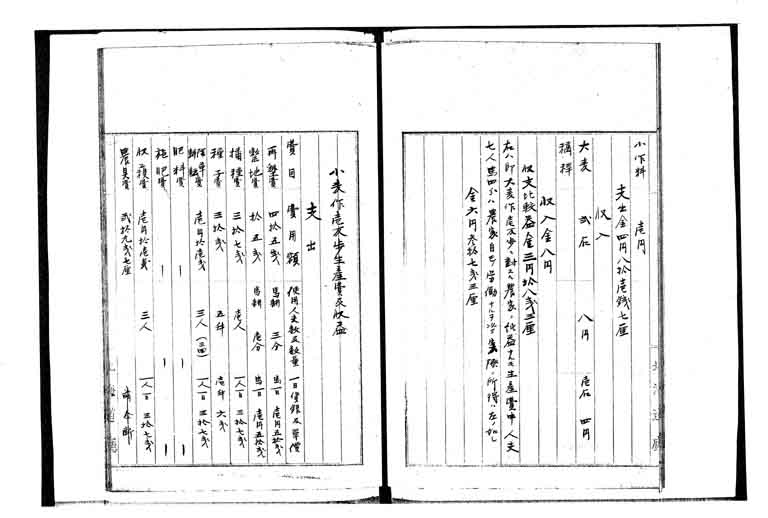 小作料 壱円
支出金四円八拾壱銭七厘
収入
大麦 弐石 八円 壱石 四円
稿稈
収入金八円
収支比較益金三円拾八戔三厘
右ハ即大麦作壱反歩ニ対スル農家ノ純益ナルモ生産費中人夫
七人馬四分ハ農家自己ノ労働ナルヲ以テ実際ノ所得ハ左ノ如シ
金六円参拾七戔三厘
北海道廳
小麦作壱反歩生産費及収益
支出
費目 費用額 使用人夫数及数量 一日賃銀及単價
再墾費 四拾五戔 馬耕 三分 馬一日 壱円五拾戔
整地費 拾五戔 馬耕 壱分 馬一日 壱円五拾戔
播種費 三拾七戔 壱人 一人一日 三拾七戔
種子費 三拾戔 五升 壱升 六戔
除草費 壱円拾壱戔 三人 一人一日 三拾七戔
肥料費 ー ー ー
施肥費 ー ー ー
収穫費 壱円拾壱戔 三人 一人一日 三拾七戔
農具費 弐拾九戔七厘
北海道廳